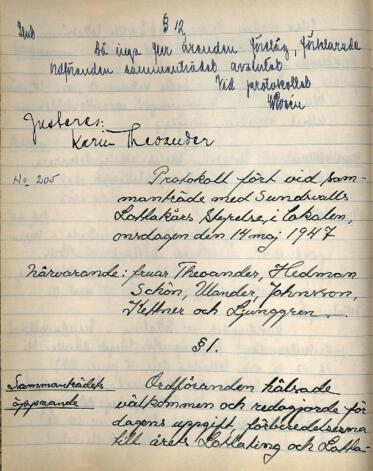 § 12
Slut
Då inga fler ärenden förelåg, förklarade
ordföranden sammanträdet avslutat
Vid protokollet
Justeras:
Karin Theander
No 205
Protokoll fört vid sam-
manträde med Sundsvalls
Lottakårs styrelse, i lokalen,
onsdagen den 14 maj 1947
Närvarande: fruar Theander, Hedman
Schön, Ulander, Johnsson,
Kettner och Ljunggren.
§ 1.
Sammanträdets
öppnande
Ordföranden hälsade
välkommen och redogjorde för
dagens uppgift, förberedelserna
till årets Lottating och Lotta-